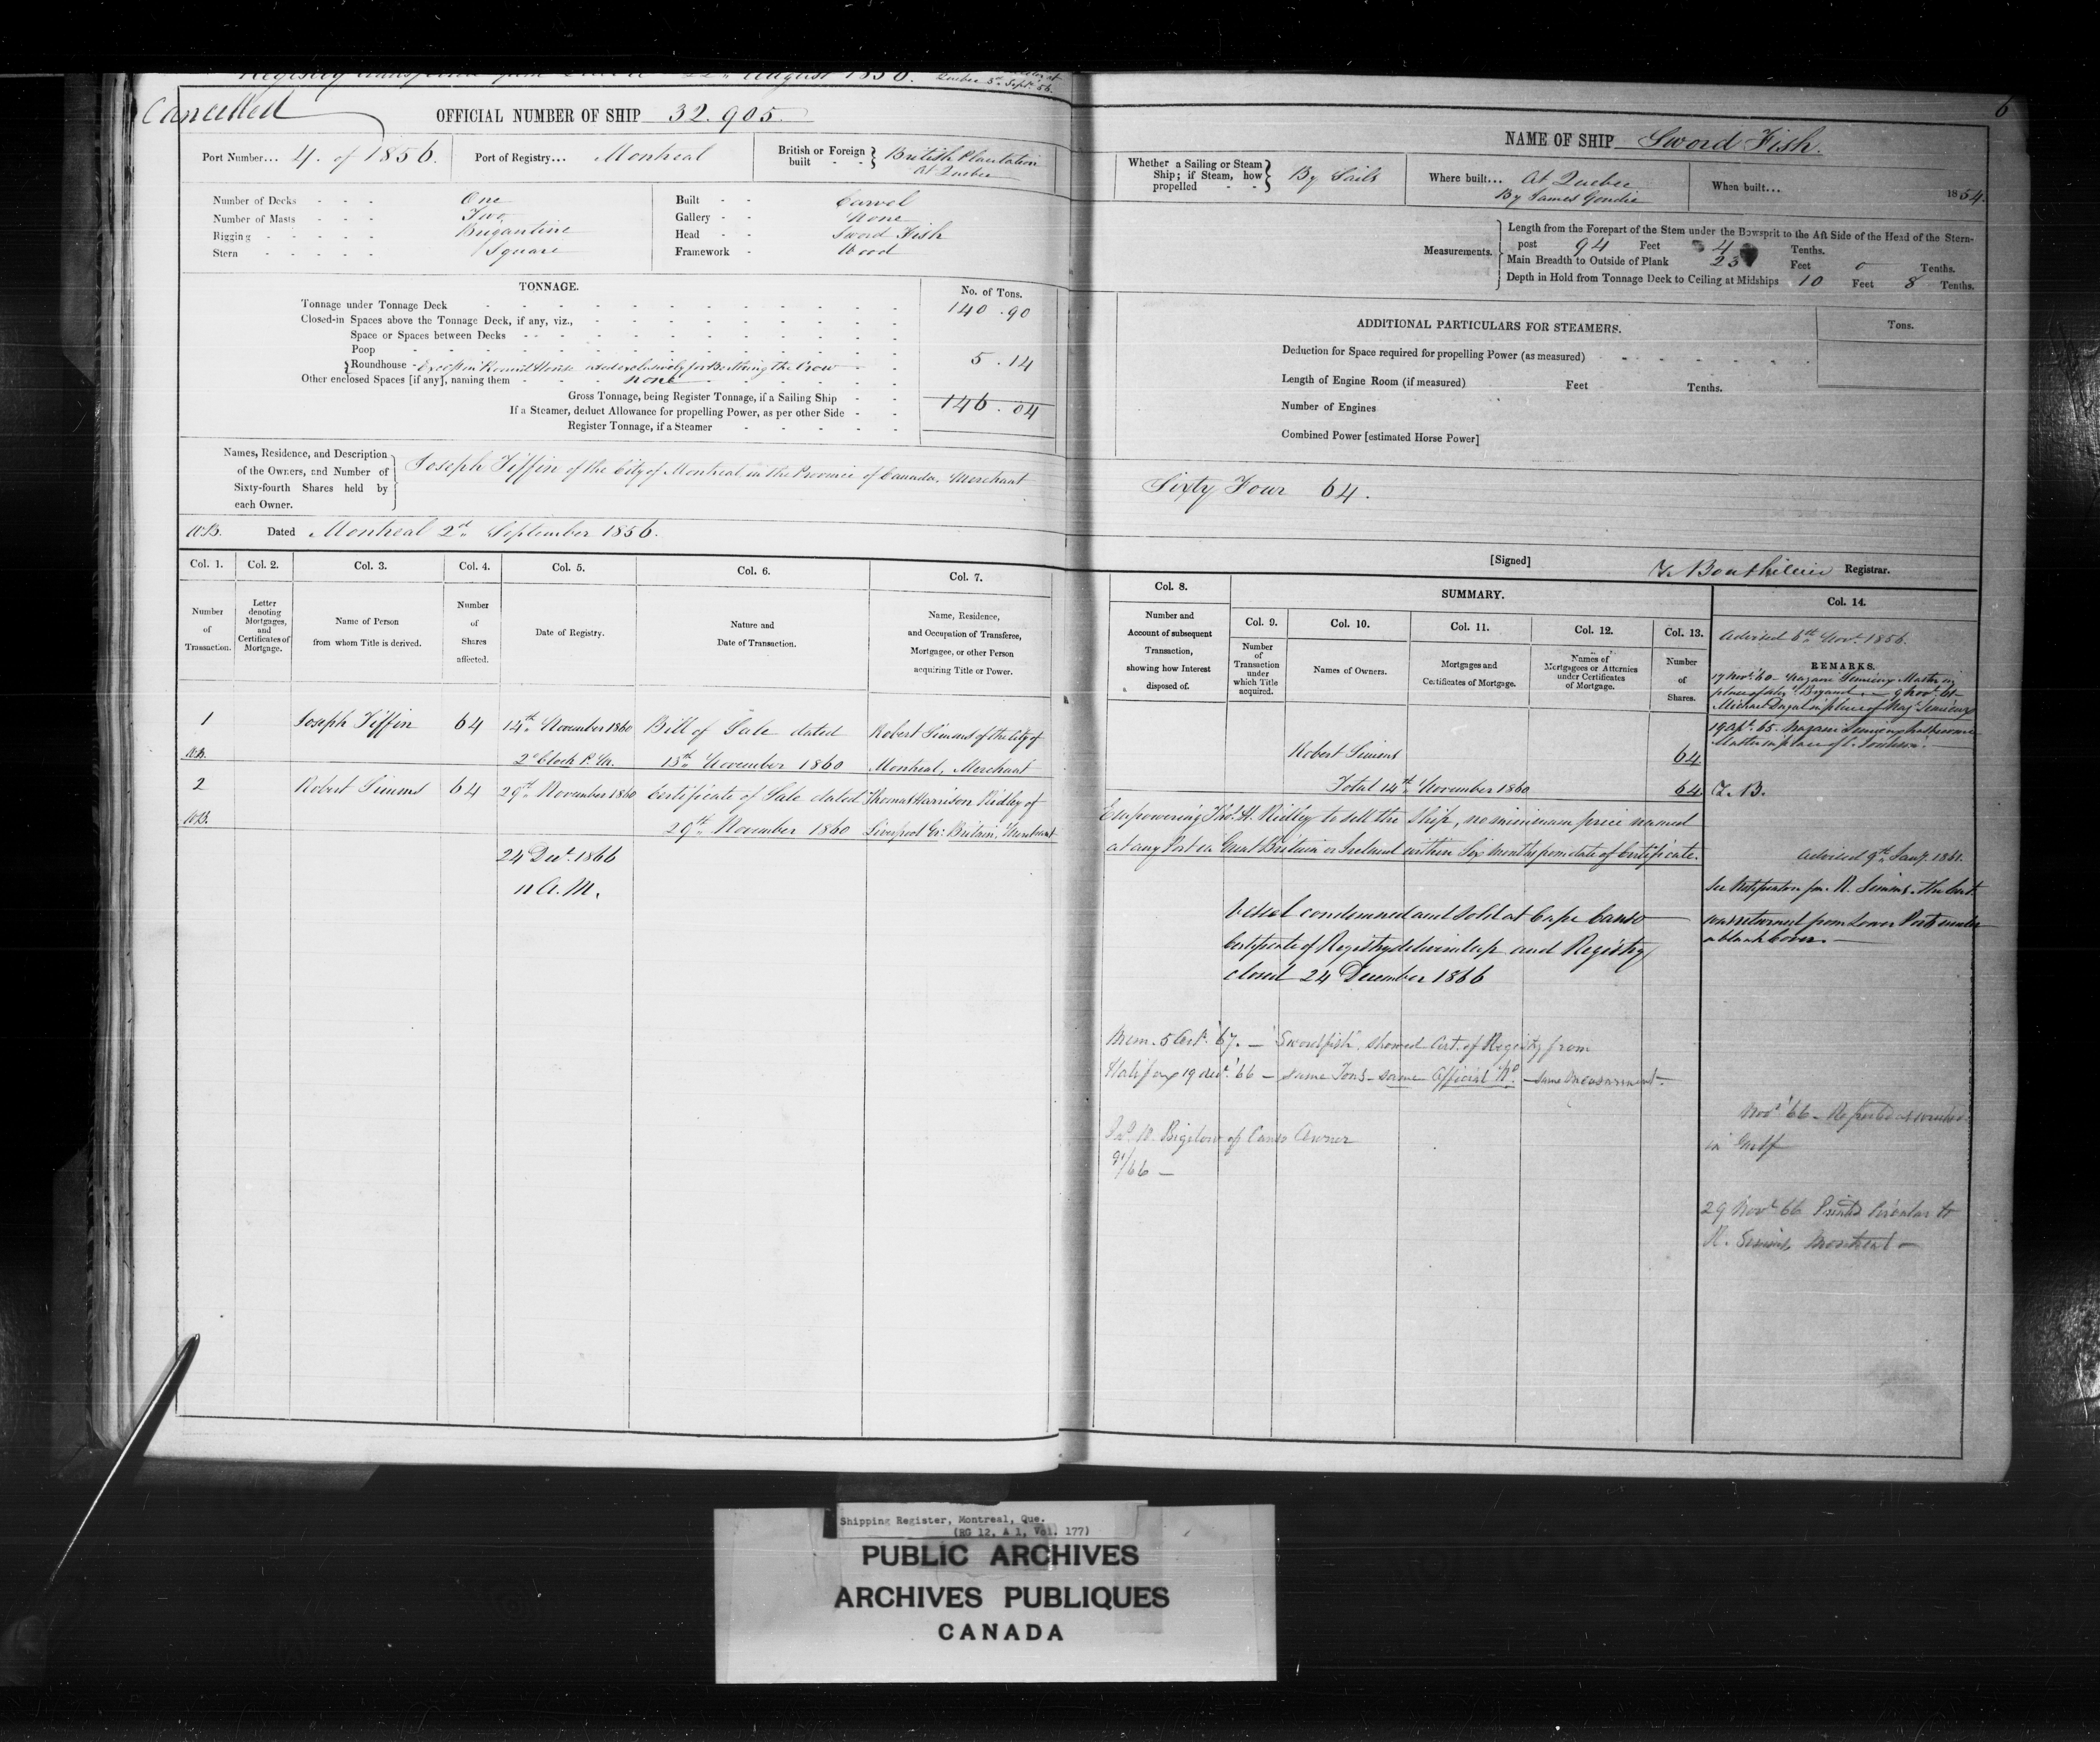 Registry transferred from Quebec 22d August 1856.
Quebec 3d Sept. 56.
Cancelled
OFFICIAL NUMBER OF SHIP 32.905.
Port Number... 4. of 1856.
Port of Registry... Montreal
British or Foreign built - - } British Plantation
At Quebec
Number of Decks - - - One
Number of Masts - - - Two
Rigging - - - - - Brigantine
Stern - - - - - Square
Built - - Carvel
Gallery - - None
Head - - Sword Fish
Framework - Wood
TONNAGE.
No. of Tons.
Tonnage under Tonnage Deck 140.90
Closed-in Spaces above the Tonnage Deck, if any, viz.,
Space or Spaces between Decks
Poop
Roundhouse - Except in Round House used exclusively for Berthing the Crew 5.14
Other enclosed Spaces [if any], naming them none
Gross Tonnage, being Register Tonnage, if a Sailing Ship 146.04
If a Steamer, deduct Allowance for propelling Power, as per other Side
Register Tonnage, if a Steamer
Names, Residence, and Description
of the Owners, and Number of
Sixty-fourth Shares held by
each Owner.
Joseph Tiffin of the City of Montreal in the Province of Canada, Merchant
W.B. Dated Montreal 2d September 1856.
Col. 1. Col. 2. Col. 3. Col. 4. Col. 5. Col. 6. Col. 7.
Number of Transaction.
Letter denoting Mortgages, and Certificates of Mortgage.
Name of Person from whom Title is derived.
Number of Shares affected.
Date of Registry.
Nature and Date of Transaction.
Name, Residence, and Occupation of Transferee, Mortgagee, or other Person acquiring Title or Power.
1 Joseph Tiffin 64 14th November 1860 Bill of Sale dated Robert Simms of the City of
W.B. 2 o'Clock P.M. 13th November 1860 Montreal, Merchant
2 Robert Simms 64 29th November 1860 Certificate of Sale dated Thomas Harrison Ridley of
W.B. 29th November 1860 Liverpool Gr: Britain, Merchant
24 Decr. 1866
11 A.M.
6
NAME OF SHIP Sword Fish.
Whether a Sailing or Steam Ship; if Steam, how propelled - - } By Sails
Where built... At Quebec
By James Goudie
When built... 1854.
Measurements.
Length from the Forepart of the Stem under the Bowsprit to the Aft Side of the Head of the Stern-
post 94 Feet 4 Tenths.
Main Breadth to Outside of Plank 23 Feet 0 Tenths.
Depth in Hold from Tonnage Deck to Ceiling at Midships 10 Feet 8 Tenths.
ADDITIONAL PARTICULARS FOR STEAMERS.
Tons.
Deduction for Space required for propelling Power (as measured)
Length of Engine Room (if measured) Feet Tenths.
Number of Engines
Combined Power [estimated Horse Power]
Sixty Four 64.
[Signed] T. Bouthillier Registrar.
Col. 8. SUMMARY. Col. 14.
Col. 9. Col. 10. Col. 11. Col. 12. Col. 13.
Number and Account of subsequent Transaction, showing how Interest disposed of.
Number of Transaction under which Title acquired.
Names of Owners.
Mortgages and Certificates of Mortgage.
Names of Mortgagees or Attornies under Certificates of Mortgage.
Number of Shares.
Advised 6th Novr. 1856.
REMARKS.
17 Novr. 60 Master in
place of Bryant 9 Novr. 61
Michael in place of
19 Apl. 65.
Master in place of
Robert Simms 64
Total 14th November 1860 64 T.B.
Empowering Thos. H. Ridley to sell the Ship, no minimum price named
at any Port in Great Britain or Ireland within Six Months from date of Certificate.
Advised 9th Jany. 1861.
R. Simms. the Cert.
was returned from Lower Ports under
a blank cover.
Vessel condemned and sold at Cape Canso
Certificate of Registry delivered up and Registry
closed 24 December 1866
Mem. 5 Oct. '67. — "Swordfish" showed Cert. of Registry from
Halifax 19 Decr. '66 — same Tons — same Official No. — same measurement.
Jno. W. Bigelow of Canso Owner
91/66 —
Novr. '66 Reported wrecked
in Gulf
29 Novr. 66 Printed Circular to
R. Simms Montreal —
Shipping Register, Montreal, Que.
(RG 12, A 1, Vol. 177)
PUBLIC ARCHIVES
ARCHIVES PUBLIQUES
CANADA